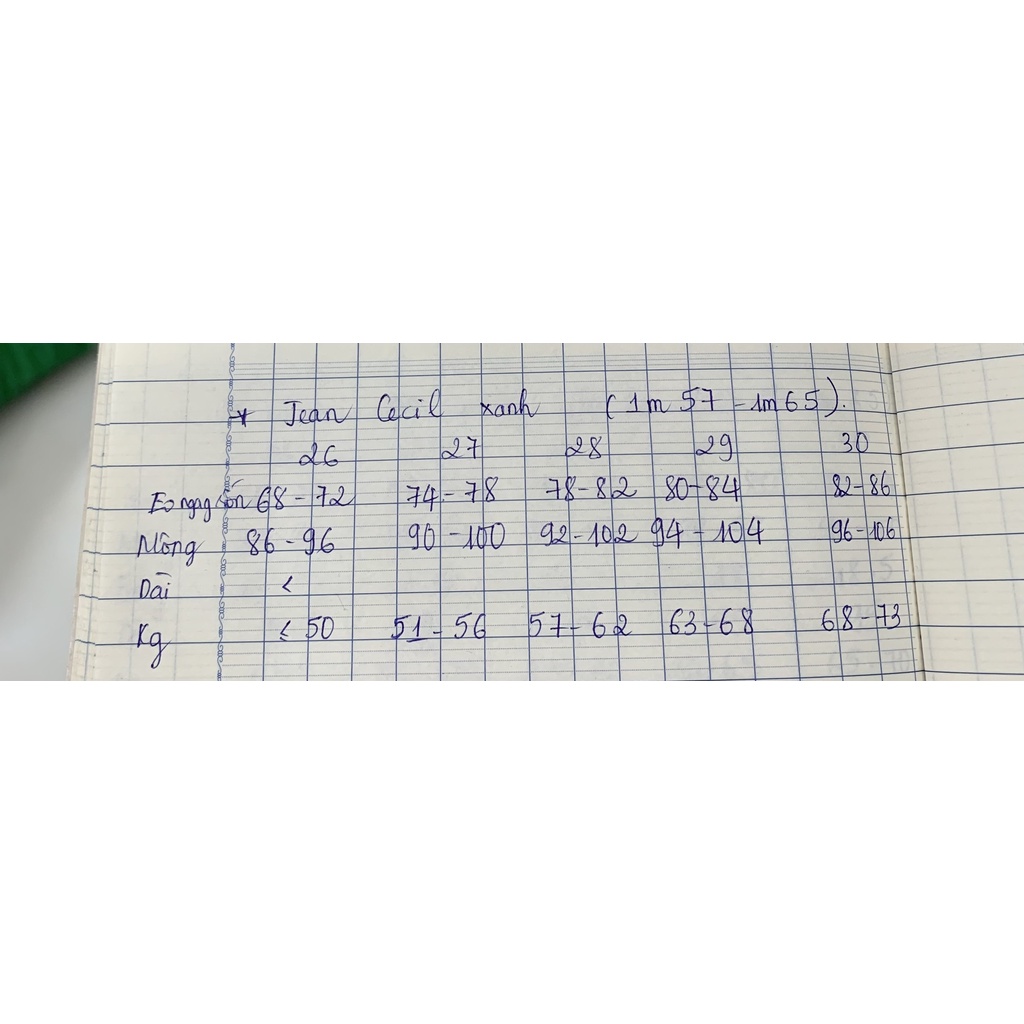 * Jean Cecil xanh (1m57 - 1m65).
26 27 28 29 30
Eo ngay rốn 68-72 74-78 78-82 80-84 82-86
Mông 86-96 90-100 92-102 94-104 96-106
Dài <
Kg ≤ 50 51-56 57-62 63-68 68-73